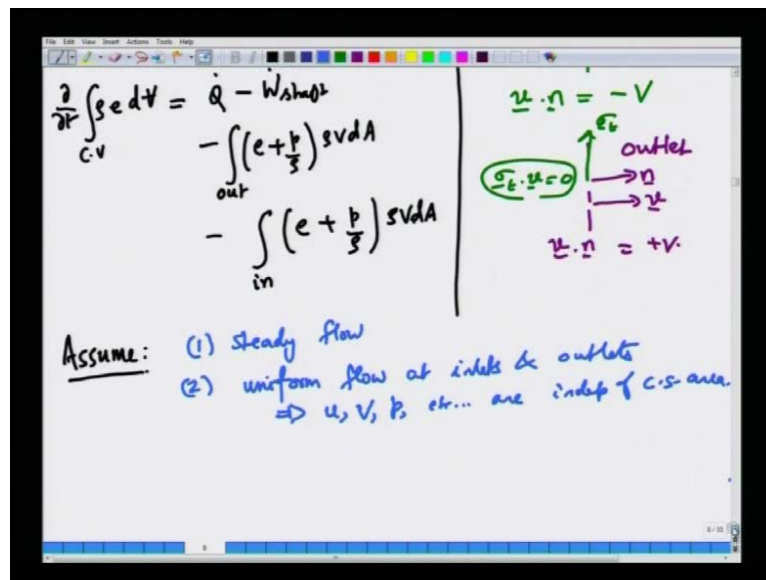 File Edit View Insert Actions Tools Help
∂/∂t ∫ ρ e dV = Q̇ − Ẇshaft
C.V
− ∫ (e + p/ρ) ρVdA
out
− ∫ (e + p/ρ) ρVdA
in
u · n = − V
σt
outlet
σt · u = 0
n
u
u · n = +V.
Assume: (1) steady flow
(2) uniform flow at inlets & outlets
⇒ u, V, p, etc... are indep of c.s. area.
8/33
8